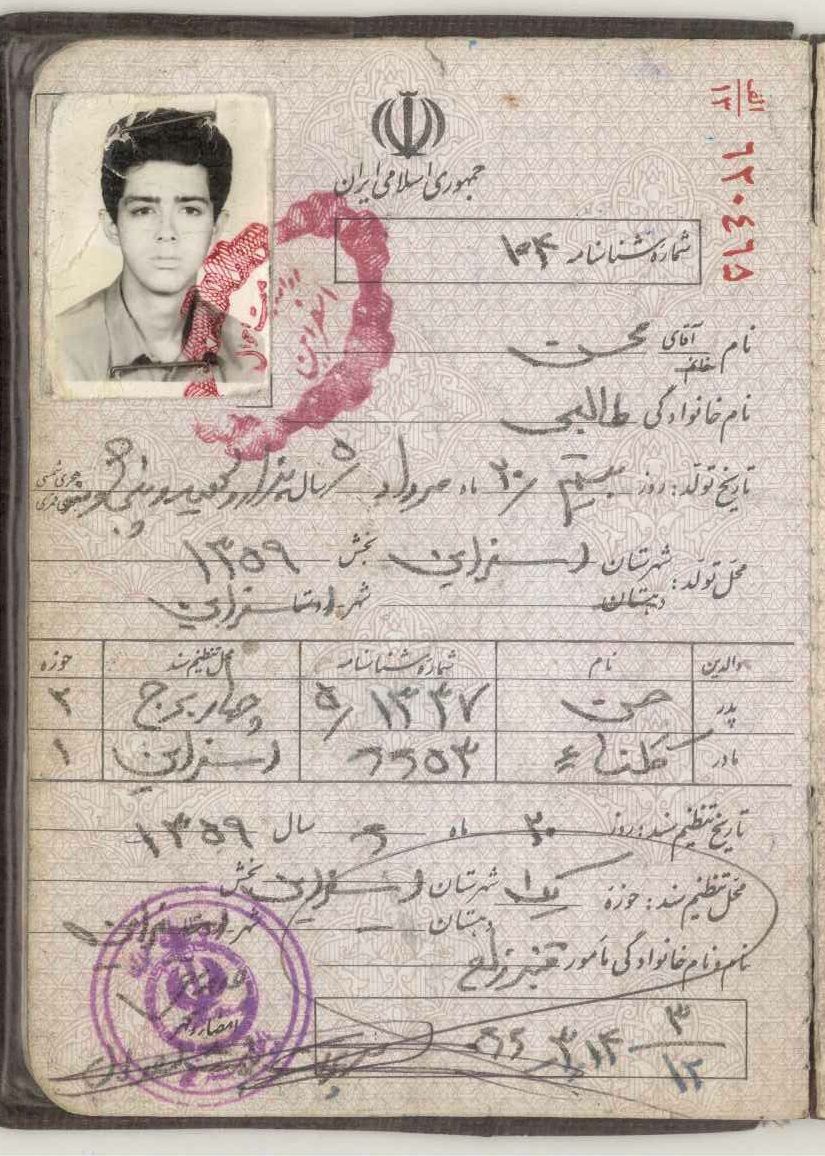 الف
۱۳
۶۲۰۴۶۵
جمهوری اسلامی ایران
شماره شناسنامه ۱۰۴
نام آقای خانم محسن
نام خانوادگی طالبی
تاریخ تولد: روز بیستم ۲۰/ ماه مرداد ۵/ سال هزار و سیصد و پنجاه و هجری شمسی هجری قمری
محل تولد: شهرستان اسفراین بخش ۱۳۵۹
دهستان شهر-روستا اسفراین
والدین نام شماره شناسنامه محل تنظیم سند حوزه
پدر حسن ۵/۱۳۳۷ چهاربرج ۲
مادر ۶۶۵۳ اسفراین ۱
تاریخ تنظیم سند: روز ۳۰ ماه ۶ سال ۱۳۵۹
محل تنظیم سند: حوزه یک ۱ شهرستان اسفراین بخش
دهستان — شهر-روستا اسفراین
نام و نام خانوادگی مأمور
امضاء و مهر
۳
۱۲